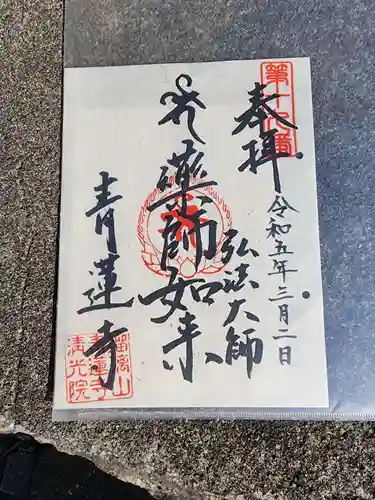 奉拝
令和五年三月二日
弘法大師
薬師如来
青蓮寺
瑠璃山
青蓮寺
清光院